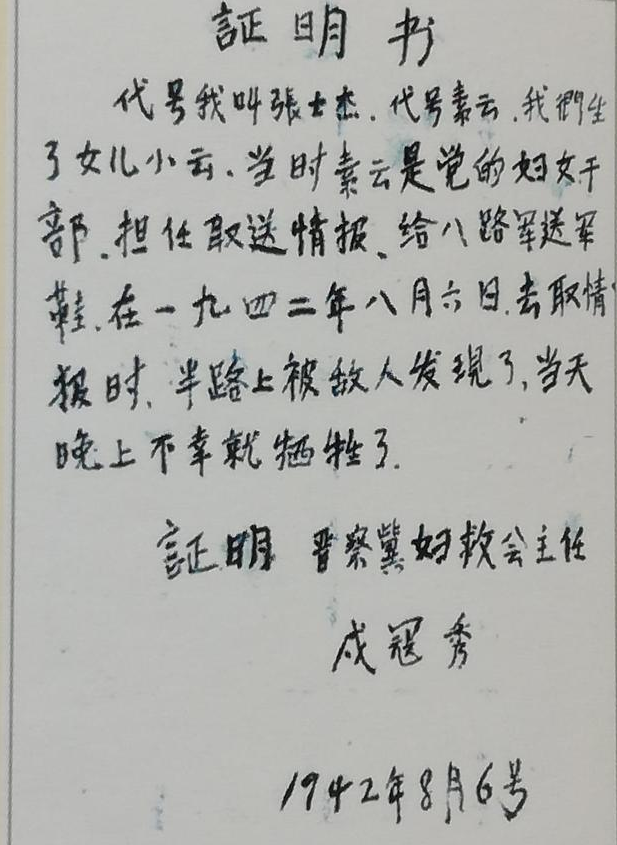 証明书
代号我叫張士杰.代号素云.我們生
了女儿小云.当时素云是党的妇女干
部.担任取送情报、给八路军送军
鞋.在一九四二年八月六日.去取情
报时.半路上被敌人发現了,当天
晚上不幸就牺牲了.
証明 晋察冀妇救会主任
戍冠秀
1942年8月6号